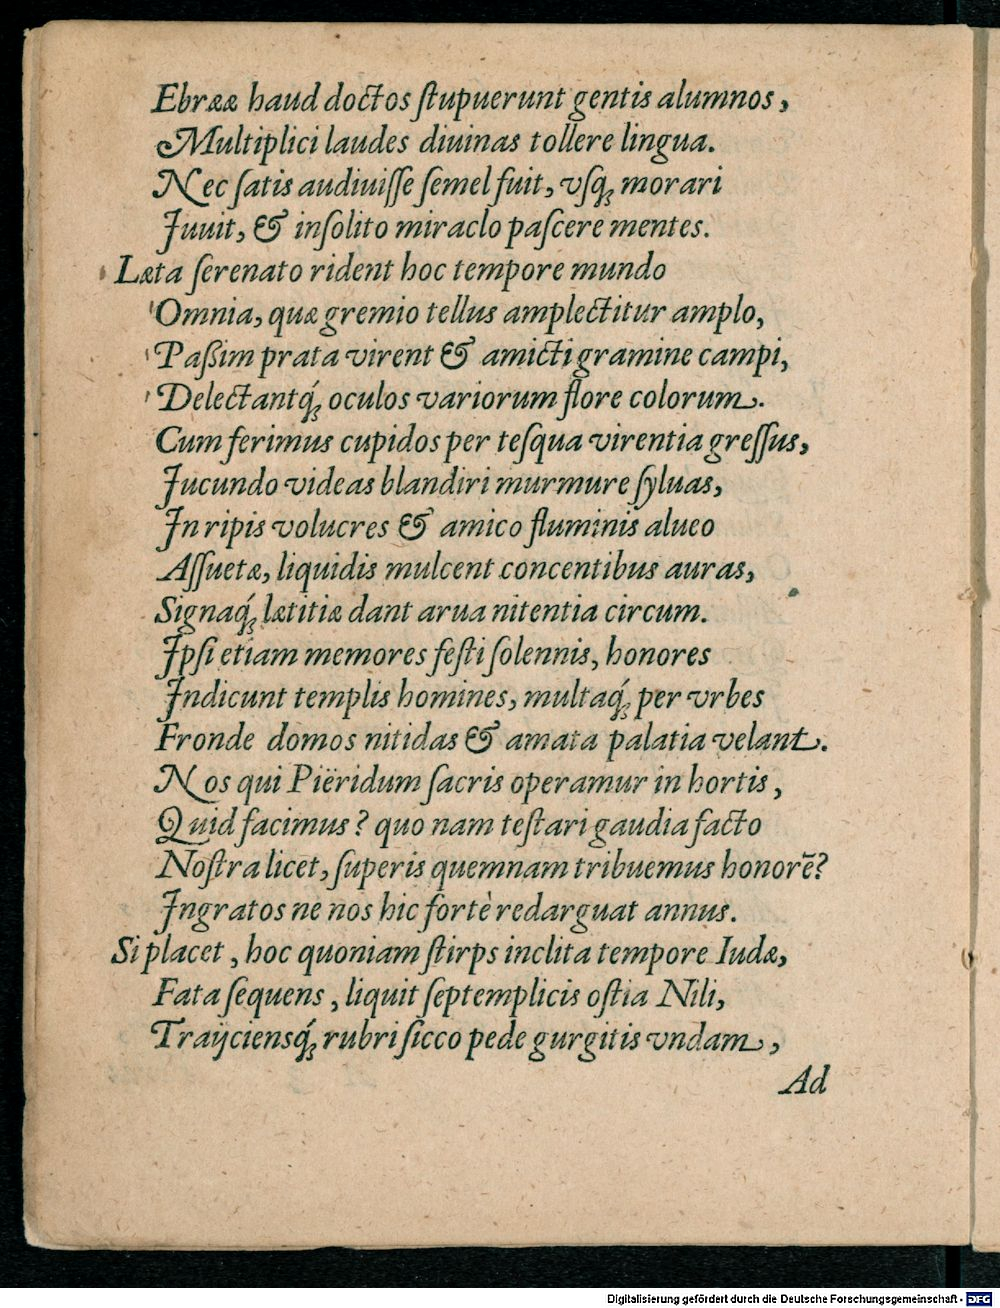 Ebrææ haud doctos ſtupuerunt gentis alumnos,
Multiplici laudes diuinas tollere lingua.
Nec ſatis audiuiſſe ſemel fuit, vſq́; morari
Juuit, & inſolito miraclo paſcere mentes.
Læta ſerenato rident hoc tempore mundo
Omnia, quæ gremio tellus amplectitur amplo,
Paßim prata virent & amicti gramine campi,
Delectantq́; oculos variorum flore colorum.
Cum ferimus cupidos per teſqua virentia greſſus,
Jucundo videas blandiri murmure ſyluas,
Jn ripis volucres & amico fluminis alueo
Aſſuetæ, liquidis mulcent concentibus auras,
Signaq́; lætitiæ dant arua nitentia circum.
Jpſi etiam memores feſti ſolennis, honores
Jndicunt templis homines, multaq́; per vrbes
Fronde domos nitidas & amata palatia velant.
Nos qui Piëridum ſacris operamur in hortis,
Quid facimus? quo nam teſtari gaudia facto
Noſtra licet, ſuperis quemnam tribuemus honorē?
Jngratos ne nos hic fortè redarguat annus.
Si placet, hoc quoniam ſtirps inclita tempore Iudæ,
Fata ſequens, liquit ſeptemplicis oſtia Nili,
Traijciensq́; rubri ſicco pede gurgitis vndam,
Ad
Digitalisierung gefördert durch die Deutsche Forschungsgemeinschaft - DFG